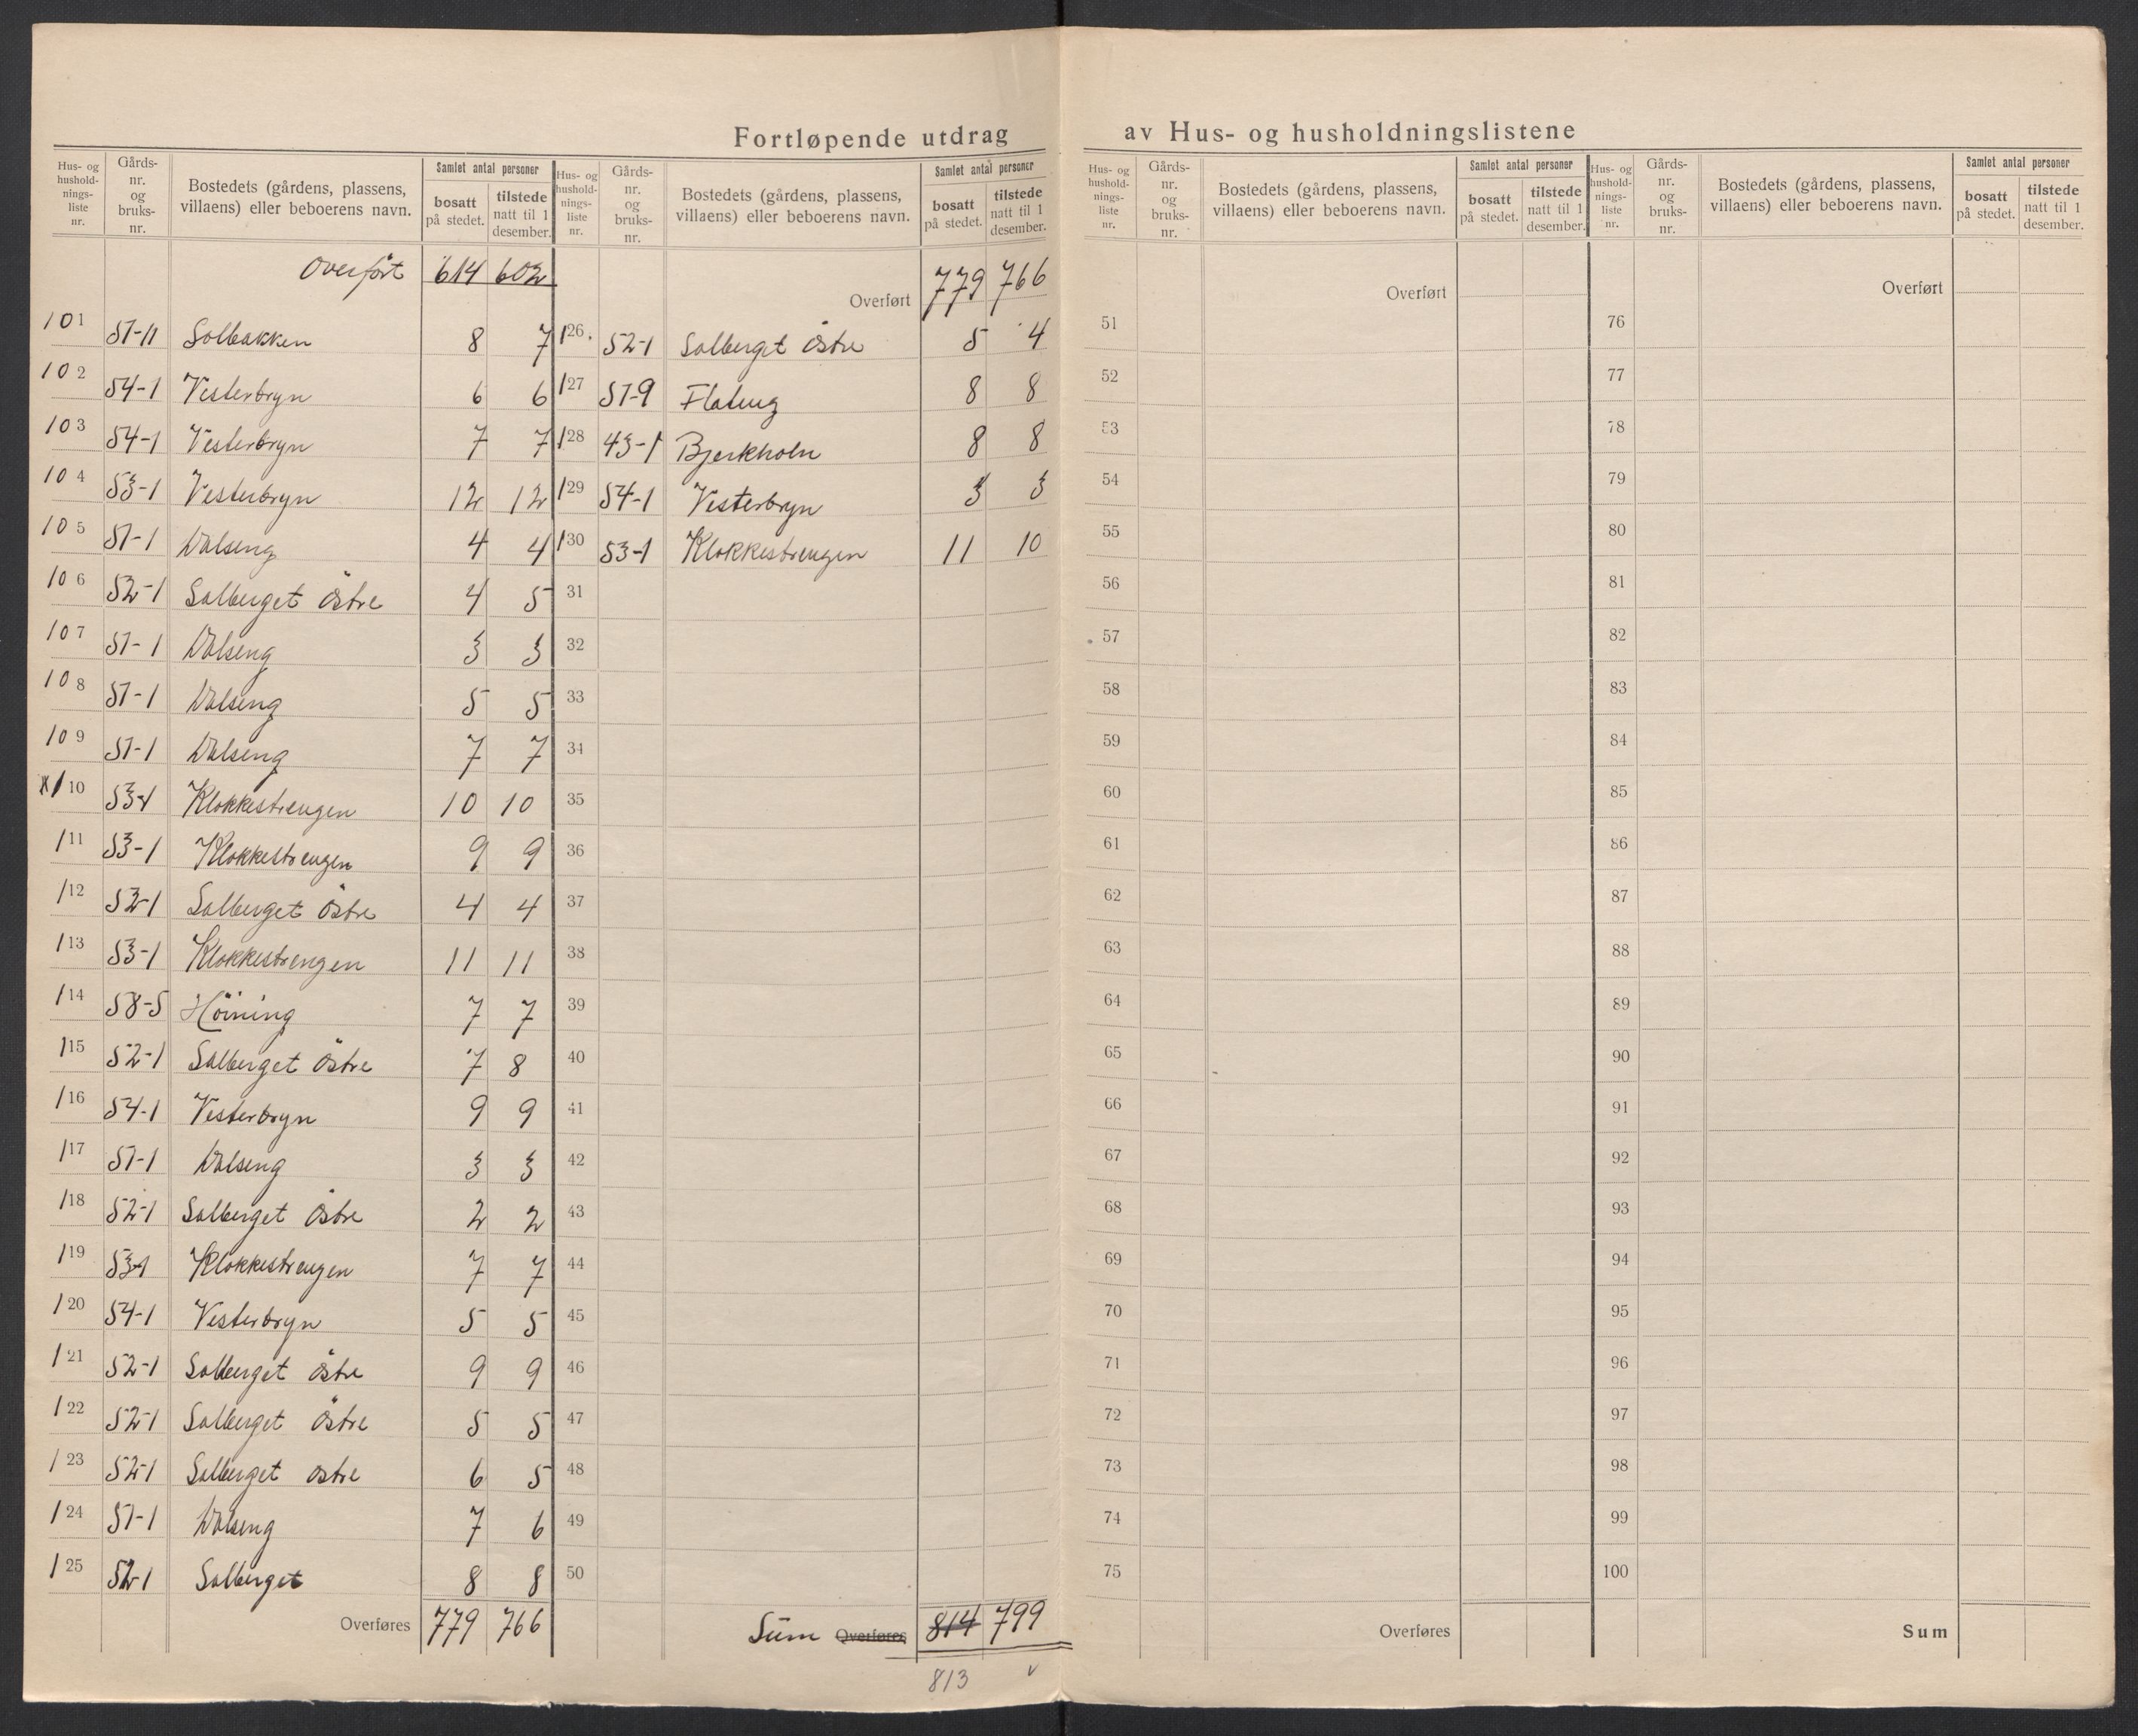 Fortløpende utdrag av Hus- og husholdningslistene
Hus- og hushold- nings- liste nr. | Gårds- nr. og bruks- nr. | Bostedets (gårdens, plassens, villaens) eller beboerens navn. | Samlet antal personer | bosatt på stedet. | tilstede natt til 1 desember.
Overført 614 602
101 51-11 Solbakken 8 7
102 54-1 Vesterbryn 6 6
103 54-1 Vesterbryn 7 7
104 53-1 Vesterbryn 12 12
105 51-1 Dalseng 4 4
106 52-1 Solberget östre 4 5
107 51-1 Dalseng 3 3
108 51-1 Dalseng 5 5
109 51-1 Dalseng 7 7
x110 53-1 Klokkestrengen 10 10
111 53-1 Klokkestrengen 9 9
112 52-1 Solberget östre 4 4
113 53-1 Klokkestrengen 11 11
114 58-5 Höining 7 7
115 52-1 Solberget östre 7 8
116 54-1 Vesterbryn 9 9
117 51-1 Dalseng 3 3
118 52-1 Solberget östre 2 2
119 53-1 Klokkestrengen 7 7
120 54-1 Vesterbryn 5 5
121 52-1 Solberget östre 9 9
122 52-1 Solberget östre 5 5
123 52-1 Solberget ostre 6 5
124 51-1 Dalseng 7 6
125 52-1 Solberget 8 8
Overføres 779 766
Hus- og hushold- nings- liste nr. | Gårds- nr. og bruks- nr. | Bostedets (gårdens, plassens, villaens) eller beboerens navn. | Samlet antal personer | bosatt på stedet. | tilstede natt til 1 desember.
Overført 779 766
126. 52-1 Solberget östre 5 4
127 51-9 Flateng 8 8
128 43-1 Bjerkholn 8 8
129 54-1 Vesterbryn 3 3
130 53-1 Klokkestrengen 11 10
31
32
33
34
35
36
37
38
39
40
41
42
43
44
45
46
47
48
49
50
Süm Overføres 814 799
813 v
Hus- og hushold- nings- liste nr. | Gårds- nr. og bruks- nr. | Bostedets (gårdens, plassens, villaens) eller beboerens navn. | Samlet antal personer | bosatt på stedet. | tilstede natt til 1 desember.
Overført
51
52
53
54
55
56
57
58
59
60
61
62
63
64
65
66
67
68
69
70
71
72
73
74
75
Overføres
Hus- og hushold- nings- liste nr. | Gårds- nr. og bruks- nr. | Bostedets (gårdens, plassens, villaens) eller beboerens navn. | Samlet antal personer | bosatt på stedet. | tilstede natt til 1 desember.
Overført
76
77
78
79
80
81
82
83
84
85
86
87
88
89
90
91
92
93
94
95
96
97
98
99
100
Sum